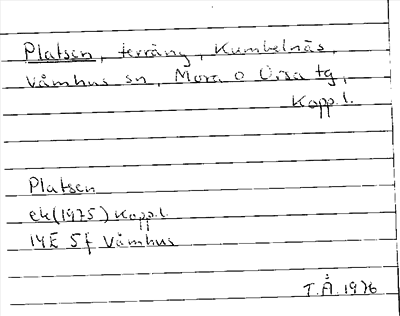 Platsen, terräng, Kumbelnäs,
Våmhus sn, Mora o Orsa tg,
Kopp.l.
Platsen
ek(1975) Kopp.l.
14E 5f Våmhus
T.Å. 1976